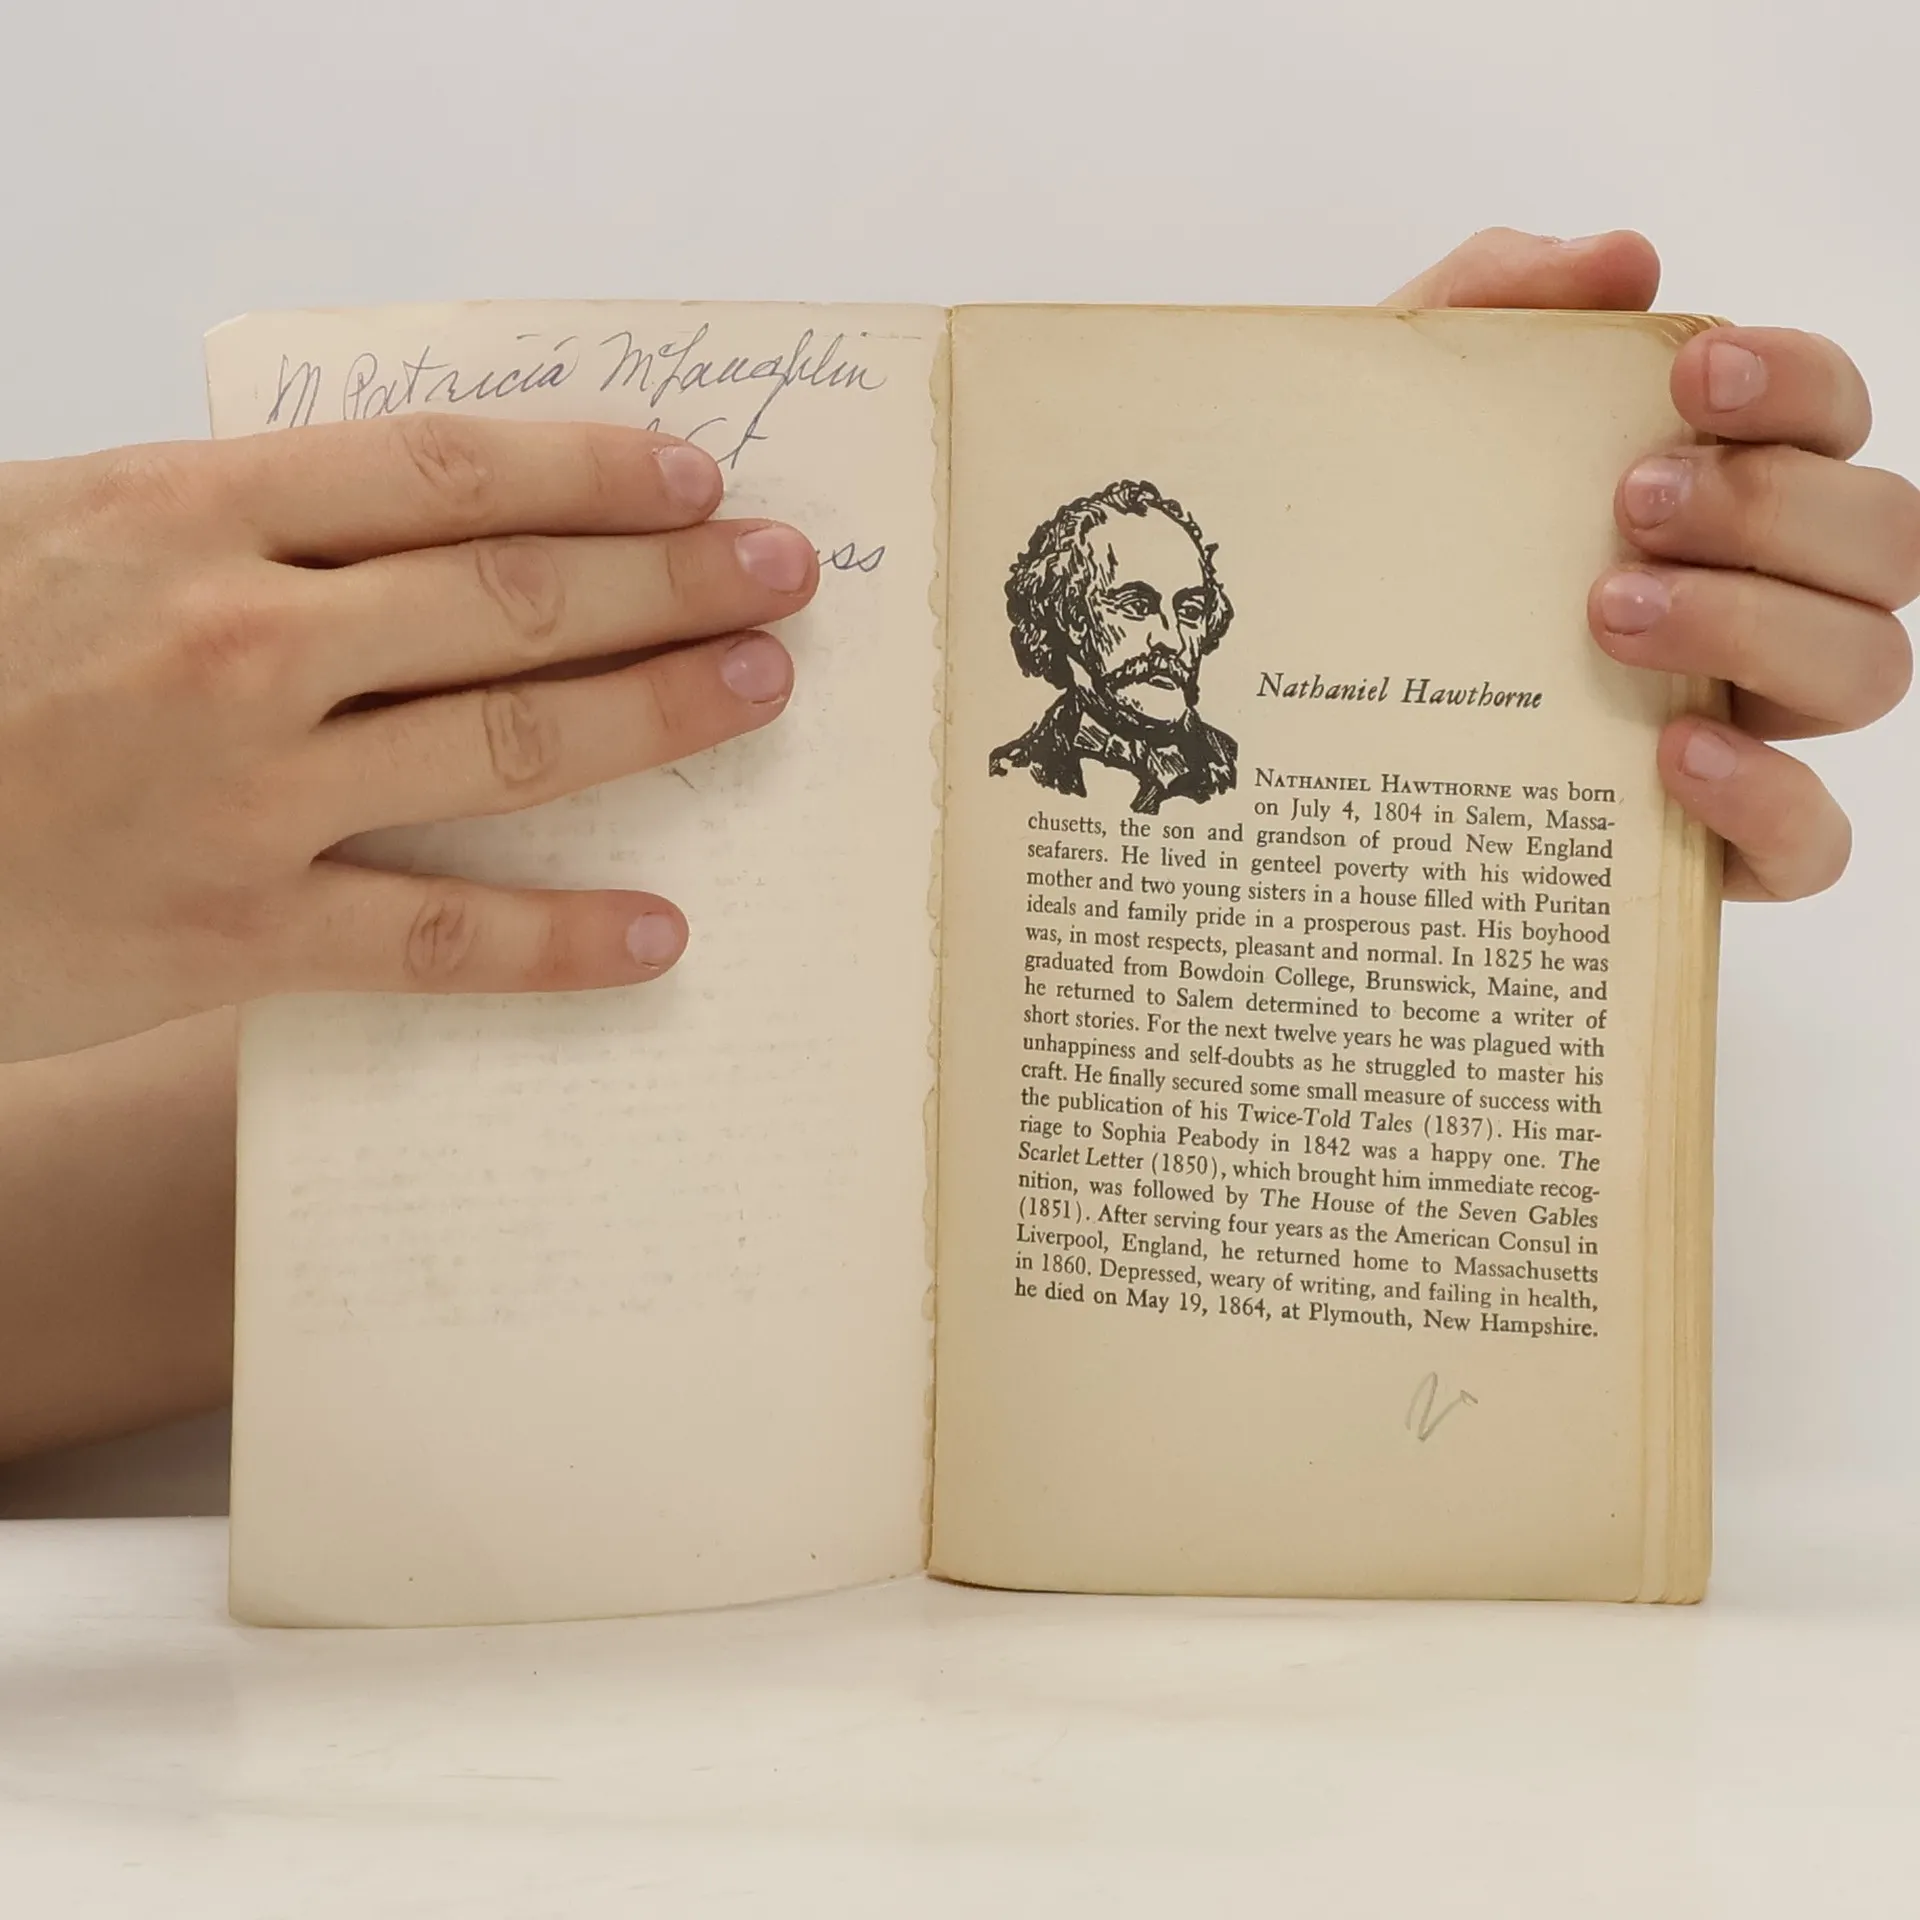 M Patricia McLaughlin
Ct
ss
Nathaniel Hawthorne
NATHANIEL HAWTHORNE was born
on July 4, 1804 in Salem, Massa-
chusetts, the son and grandson of proud New England
seafarers. He lived in genteel poverty with his widowed
mother and two young sisters in a house filled with Puritan
ideals and family pride in a prosperous past. His boyhood
was, in most respects, pleasant and normal. In 1825 he was
graduated from Bowdoin College, Brunswick, Maine, and
he returned to Salem determined to become a writer of
short stories. For the next twelve years he was plagued with
unhappiness and self-doubts as he struggled to master his
craft. He finally secured some small measure of success with
the publication of his Twice-Told Tales (1837). His mar-
riage to Sophia Peabody in 1842 was a happy one. The
Scarlet Letter (1850), which brought him immediate recog-
nition, was followed by The House of the Seven Gables
(1851). After serving four years as the American Consul in
Liverpool, England, he returned home to Massachusetts
in 1860. Depressed, weary of writing, and failing in health,
he died on May 19, 1864, at Plymouth, New Hampshire.